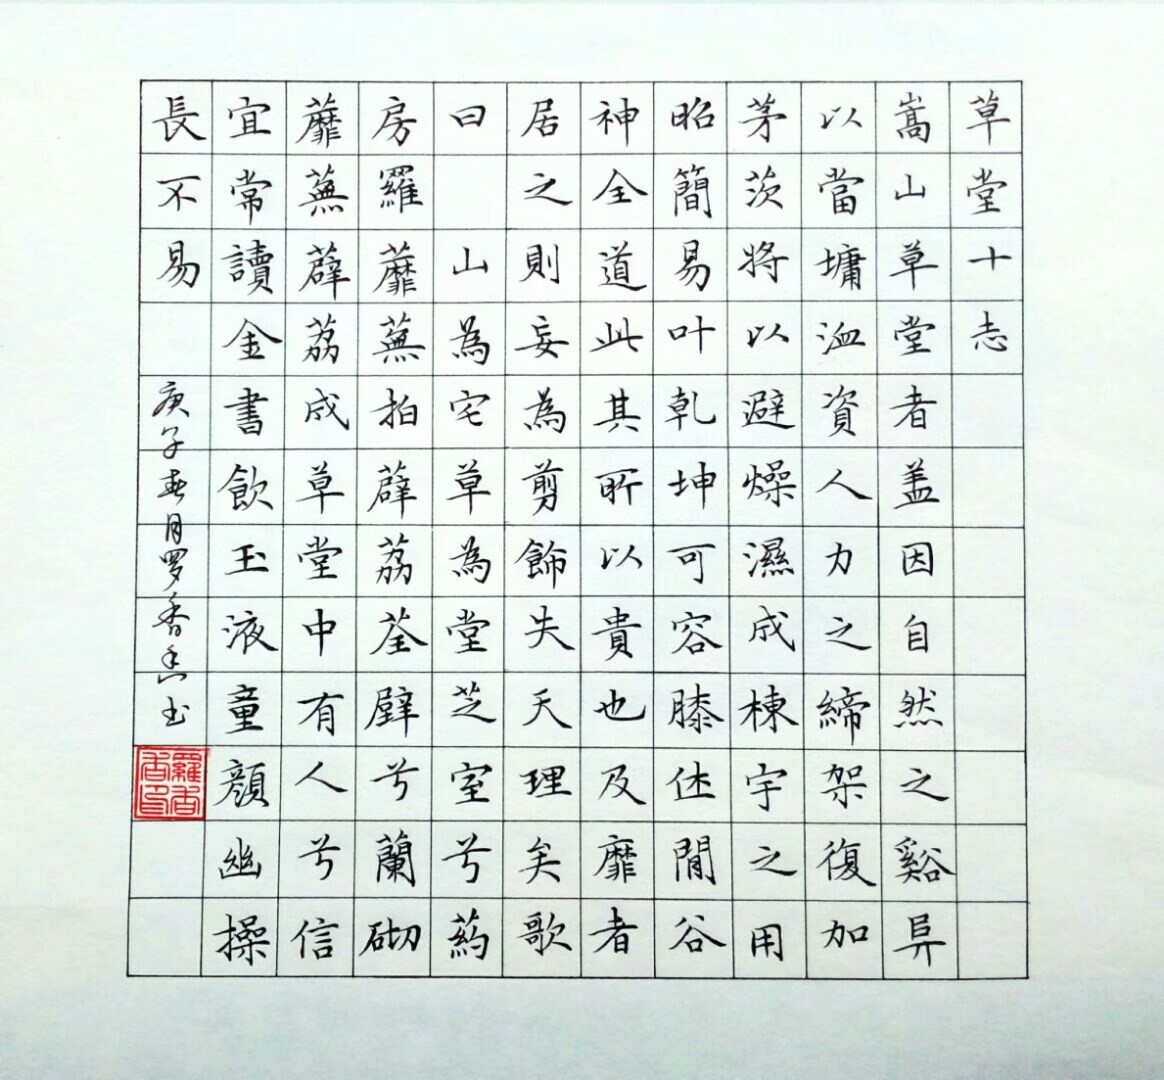 草堂十志
嵩山草堂者盖因自然之谿阜
以當墉洫資人力之締架復加
茅茨將以避燥濕成棟宇之用
昭簡易叶乾坤可容膝休閒谷
神全道此其所以貴也及靡者
居之則妄為剪飾失天理矣歌
曰 山為宅草為堂芝室兮葯
房羅蘼蕪拍薜荔荃壁兮蘭砌
蘼蕪薜荔成草堂中有人兮信
宜常讀金書飲玉液童顏幽操
長不易
庚子春月罗香香书
羅香香印